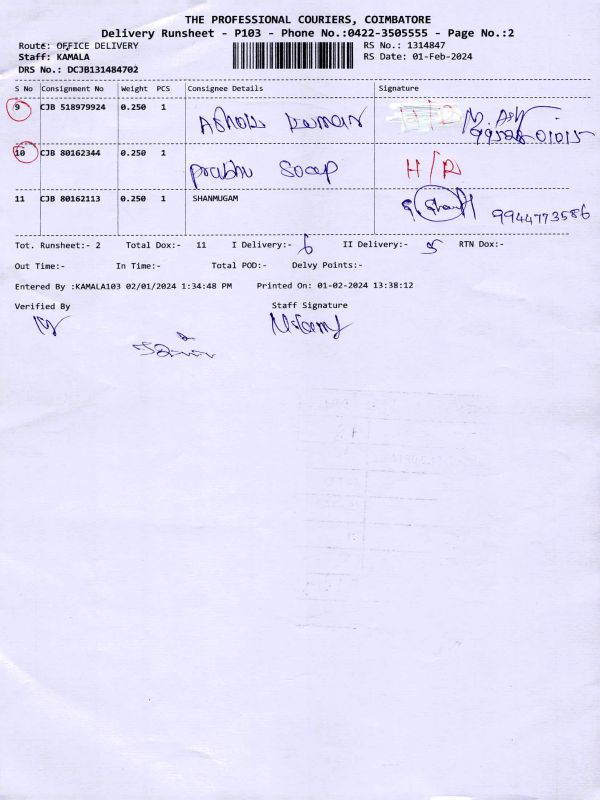 THE PROFESSIONAL COURIERS, COIMBATORE
Delivery Runsheet - P103 - Phone No.:0422-3505555 - Page No.:2
Route: OFFICE DELIVERY RS No.: 1314847
Staff: KAMALA RS Date: 01-Feb-2024
DRS No.: DCJB131484702
S No Consignment No Weight PCS Consignee Details Signature
9 CJB 518979924 0.250 1 Ashok Kumar
10 CJB 80162344 0.250 1 Prabhu Soap H/R
11 CJB 80162113 0.250 1 SHANMUGAM 9944773586
Tot. Runsheet:- 2 Total Dox:- 11 I Delivery:- 6 II Delivery:- 5 RTN Dox:-
Out Time:- In Time:- Total POD:- Delvy Points:-
Entered By :KAMALA103 02/01/2024 1:34:48 PM Printed On: 01-02-2024 13:38:12
Verified By Staff Signature